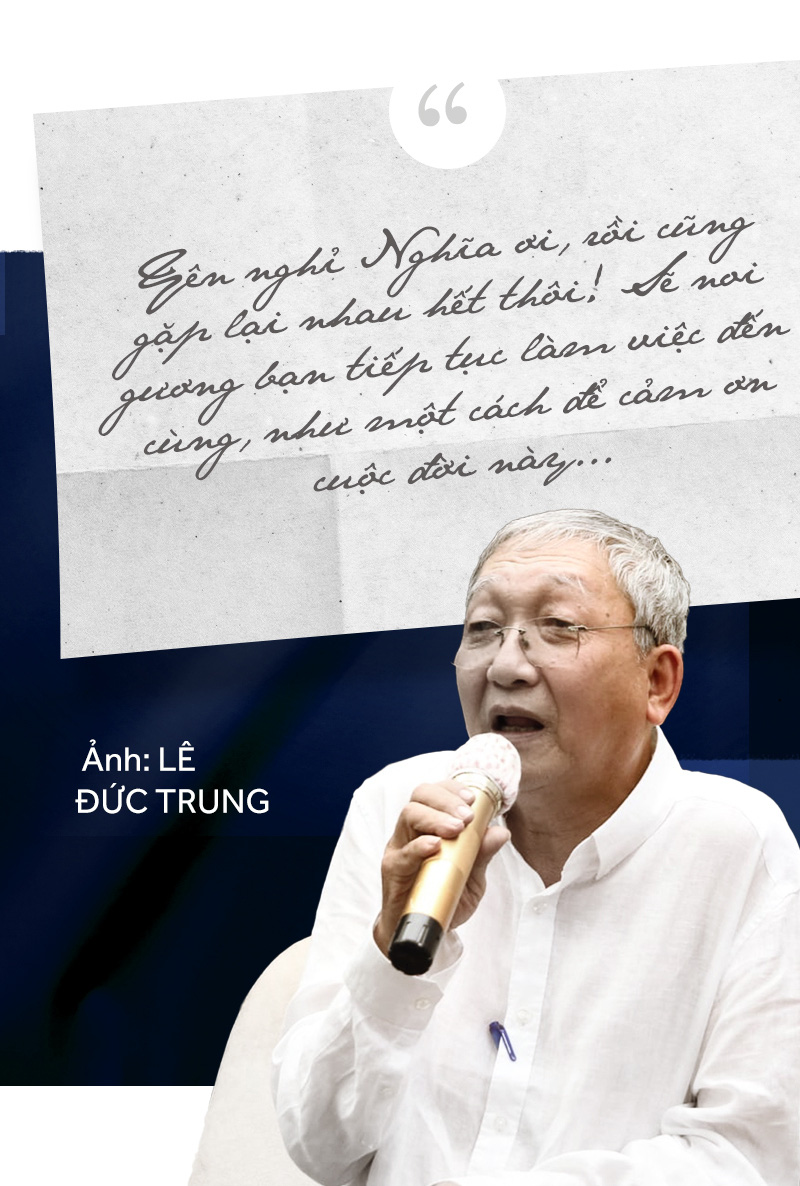 “
Yên nghỉ Nghĩa ơi, rồi cũng
gặp lại nhau hết thôi! Sẽ noi
gương bạn tiếp tục làm việc đến
cùng, như một cách để cảm ơn
cuộc đời này...
Ảnh: LÊ
ĐỨC TRUNG